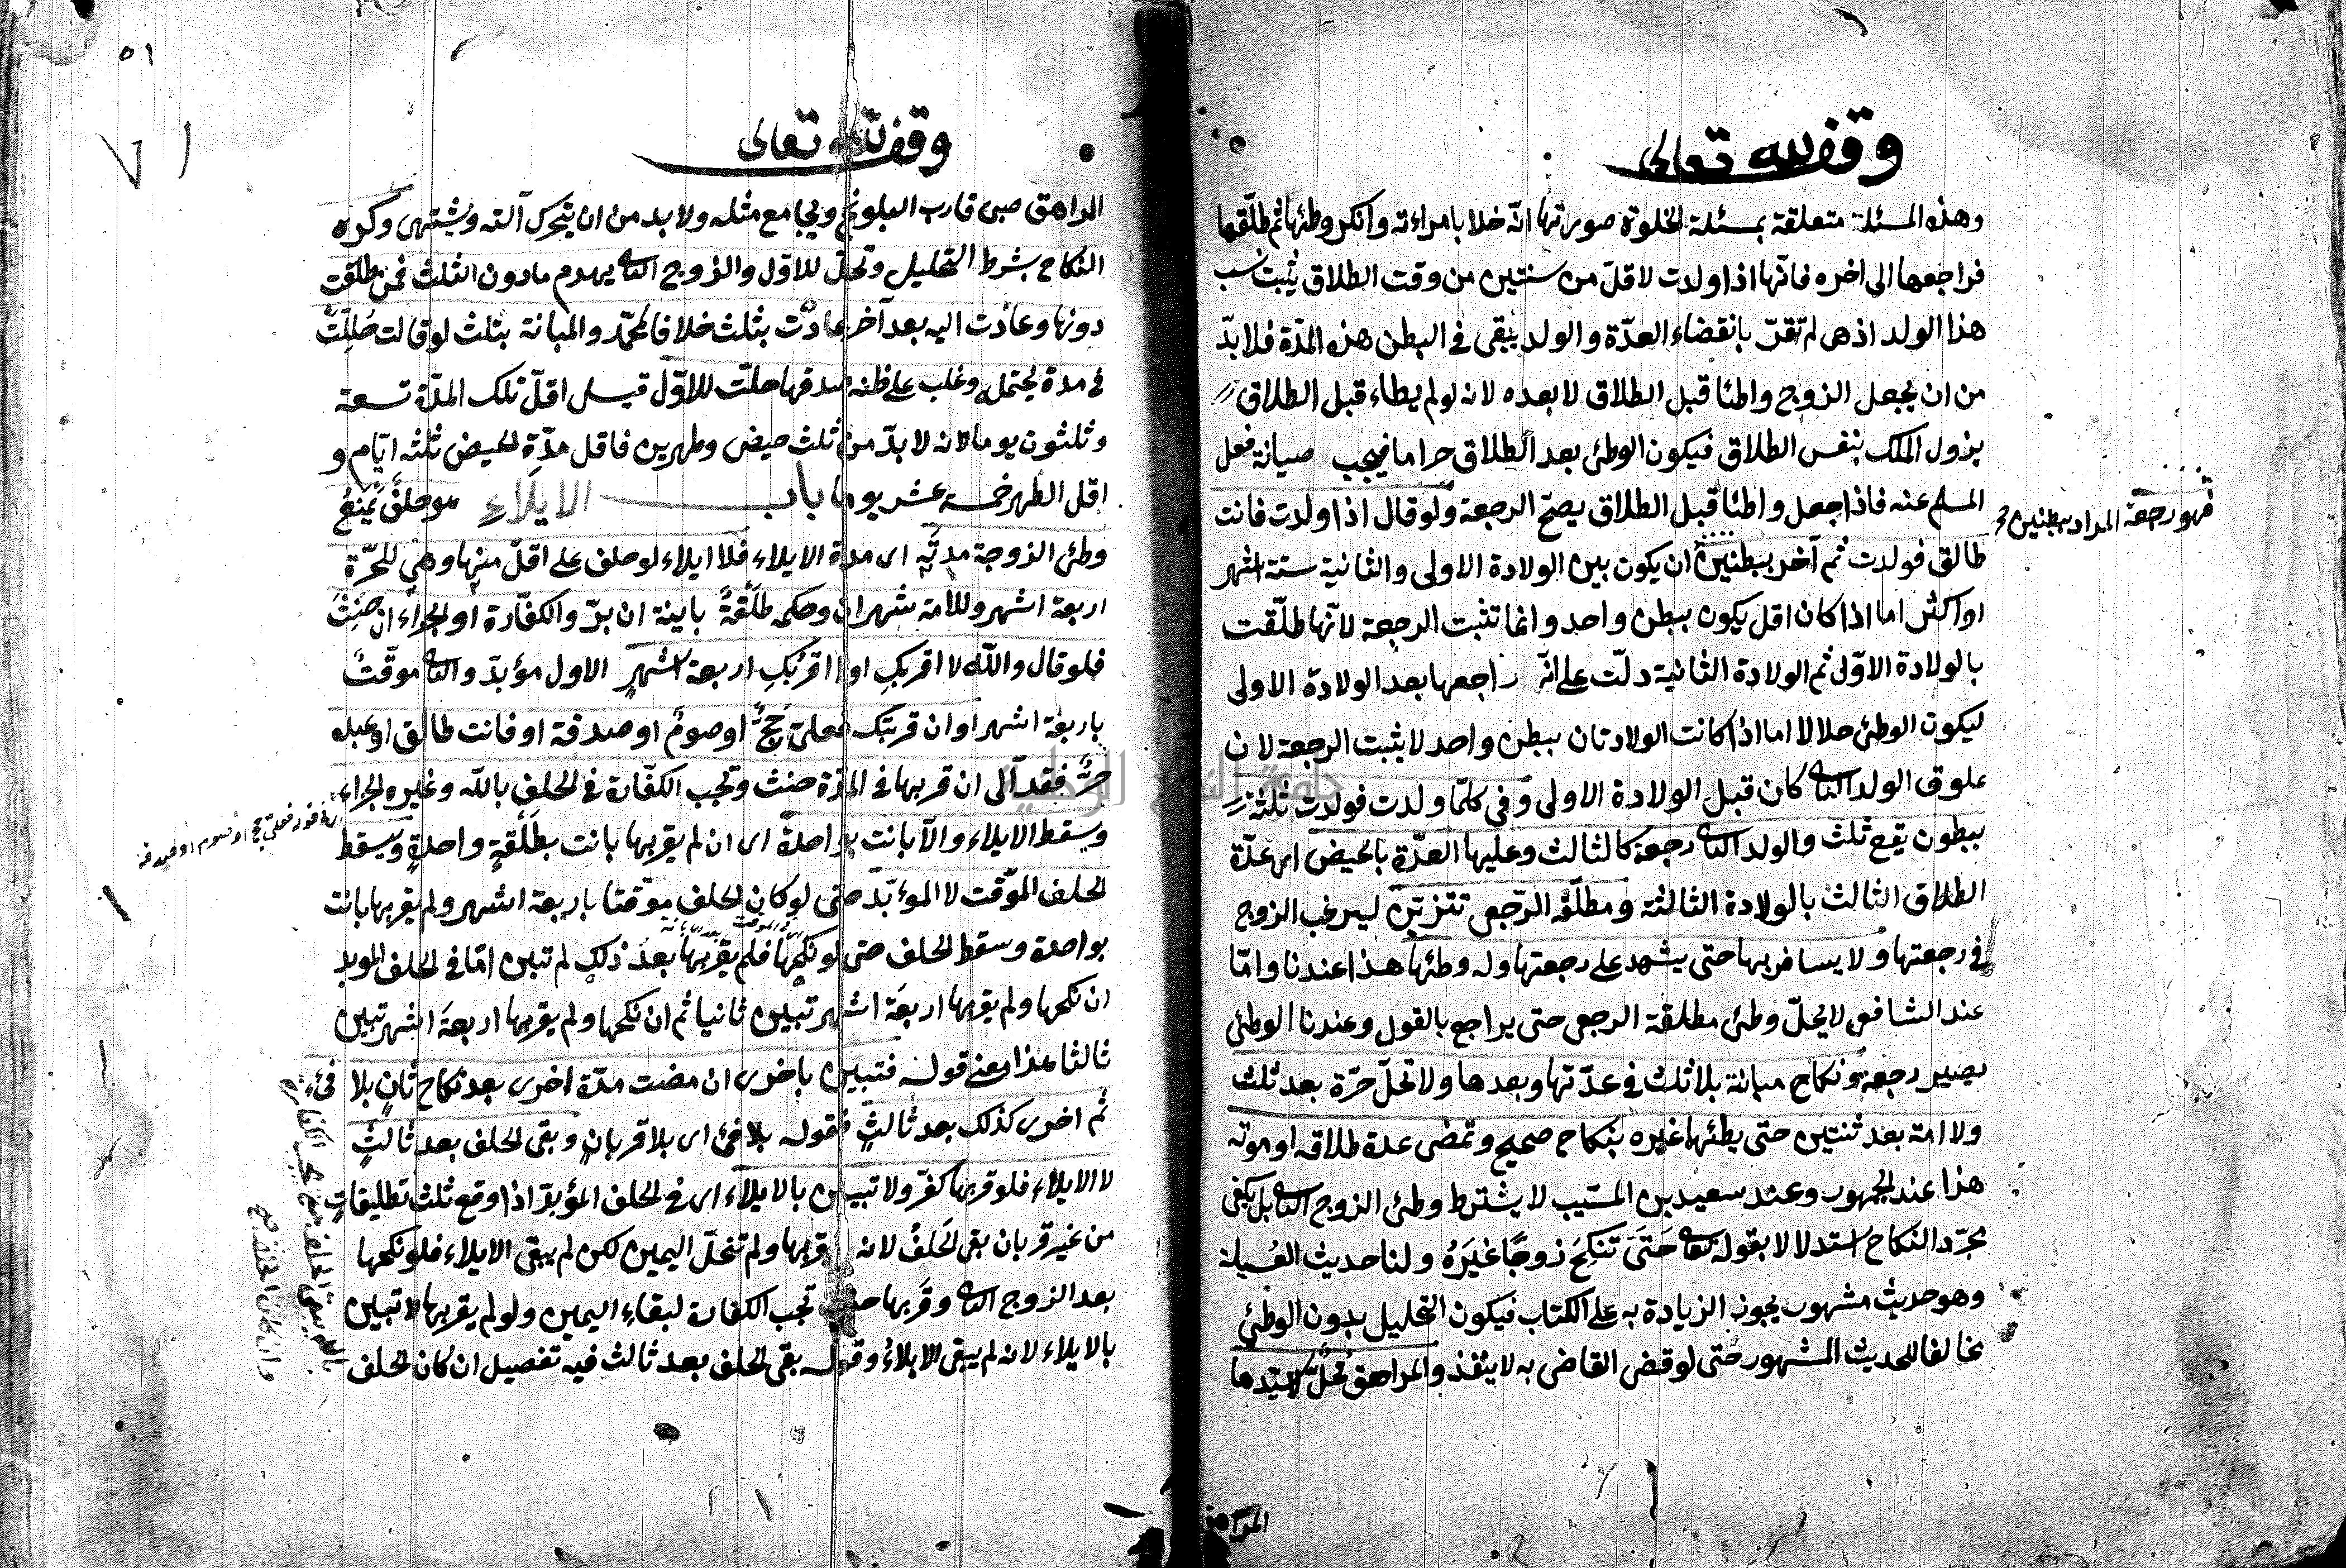 وقف لله تعالى
وهذه المسئلة متعلقة بمسئلة الخلوة صورتها انّه خلا بامراءته وانكر وطئها ثم طلّقها
فراجعها الى اخره فانّها اذا ولدت لاقلّ من سنتين من وقت الطلاق يثبت نسب
هذا الولد اذ هى لم تقرّ بانقضاء العدّة والولد يبقى فى البطن هذه المدّة فلا بدّ
من ان يجعل الزوج واطئا قبل الطلاق لا بعده لانه لو لم يطاء قبل الطلاق
يزول الملك بنفس الطلاق فيكون الوطئ بعد الطلاق حراما فيجب صيانة فعل
المسلم عنه فاذا جعل واطئا قبل الطلاق يصحّ الرجعة ولو قال اذا ولدت فانت
طالق فولدت ثم آخر ببطنين ان يكون بين الولادة الاولى والثانية ستة اشهر
او اكثر اما اذا كان اقل يكون ببطن واحد وانما تثبت الرجعة لانّها طلّقت
بالولادة الاوّلى ثم الولادة الثانية دلّت على انّه راجعها بعد الولادة الاولى
ليكون الوطئ حلالا اما اذا كانت الولادتان ببطن واحد لا يثبت الرجعة لان
علوق الولد الثانى كان قبل الولادة الاولى وفى كلّما ولدت فولدت ثلثة
ببطون يقع ثلث والولد الثانى رجعة كالثالث وعليها العدّة بالحيض اى عدّة
الطلاق الثالث بالولادة الثالثة ومطلّقة الرّجعى تتزيّن ليرغب الزوج
فى رجعتها ولا يسافر بها حتى يشهد على رجعتها وله وطئها هذا عندنا وامّا
عند الشافعى لا يحلّ وطئ مطلقة الرجعى حتى يراجع بالقول وعندنا الوطئ
يصير رجعة ونكاح مبانة بلا ثلث فى عدّتها وبعدها ولا تحلّ حرّة بعد ثلث
ولا امة بعد ثنتين حتى يطئها غيره بنكاح صحيح وتمضى عدة طلاقه او موته
هذا عند الجمهور وعند سعيد بن المسّيب لا يشترط وطئ الزوج الثانى بل يكفى
مجرّد النكاح استدلالا بقوله تعالى حَتَّى تَنكِحَ زوجًا غَيرَهُ ولنا حديث العُسيلة
وهو حديث مشهور يجوز الزيادة به على الكتاب فيكون التحليل بدون الوطئ
مخالفا للحديث المشهور حتى لو قضى القاضى به لا ينفذ والمراهق محلّل لا سيّدها
المراهق
فهو رجعة المراد ببطنين
٥١
وقف لله تعالى
المراهق صبى قارب البلوغ ويجامع مثله ولا بد من ان يتحرك آلته ويشتهى وكره
النكاح بشرط التحليل وتحلّ للاوّل والزوج الثانى يهدم ما دون الثلث فمن طلّقت
دونها وعادت اليه بعد آخر عادت بثلث خلافا لمحمّد والمبانة بثلث لو قالت حُلِّلت
فى مدة يحتمل وغلب على ظنه صدقها حلّت للاوّل قيل اقلّ تلك المدّة تسعة
وثلثون يوما لانه لا بدّ من ثلث حيض وطهرين فاقل مدّة الحيض ثلثه ايّام و
اقل الطهر خمسة عشر يوما باب الايلاء هو حلفٌ يَمنَعُ
وطئ الزوجة مدتَه اى مدة الايلاء فلا ايلاء لو حلف على اقلّ منها وهى للحرّة
اربعة اشهر وللامة شهران وحكمه طلقةٌ باينة ان برّ والكفّارة او الجزاء ان حَنِثَ
فلو قال والله لا اقربكِ او لا اقربُكِ اربعة اشهرٍ الاول مؤبدّ والثانى موقّتٌ
باربعة اشهر او ان قربتك فعلىّ حَجٌّ او صومٌ او صدقة او فانت طالق او عبده
حرٌّ فقد آلى ان قربها فى المدّة حنث وتجب الكفّارة فى الحلف بالله وغيره الجزاء
وسقط الايلاء والّا بانت بواحدة اى ان لم يقربها بانت بطَلْقةٍ واحدةٍ وسقط
الحلف الموّقت لا المؤبّد حتى لو كان الحلف موّقتا باربعة اشهر ولم يقربها بانت
بواحدة وسقط الحلف حتى لو نكحها فلم يقربها بعد ذلك لم تبن امّا فى الحلف المؤبد
ان نكحها ولم يقربها اربعة اشهر تبين ثانيا ثم ان نكحها ولم يقربها اربعة اشهر تبين
ثالثا هذا معنى قوله فتبين باخرى ان مضت مدّة اخرى بعد نكاح ثانٍ بلا فئ
ثم اخرى كذلك بعد ثالثٍ فقوله بلا فئ اى بلا قربانٍ وبقى الحلف بعد ثالثٍ
لا الايلاء فلو قربها كفّر ولا تبين بالايلاء اى فى الحلف المؤبدّ اذا وقع ثلث تطليقات
من غير قربان بقى الحَلفُ لانه قربها ولم تنحلّ اليمين لكن لم يبقى الايلاء فلو نكحها
بعد الزوج الثانى وقربها تجب الكفارة لبقاءِ اليمين ولو لم يقربها لا تبين
بالايلاء لانه لم يبقى الايلاءُ وقوله بقى الحلف بعد ثالث فيه تفصيل ان كان الحلف
فعلىّ حج او صوم او صدقة